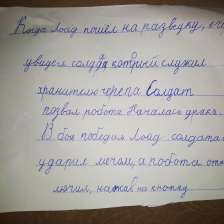 Когда Лойд пошёл на разведку, он
увидел солдата который служил
хранителю черепа Солдат
позвал робота Началась драка.
В бою победил Лойд солдата
ударил мечом, а робота отк
лючил, нажав на кнопку